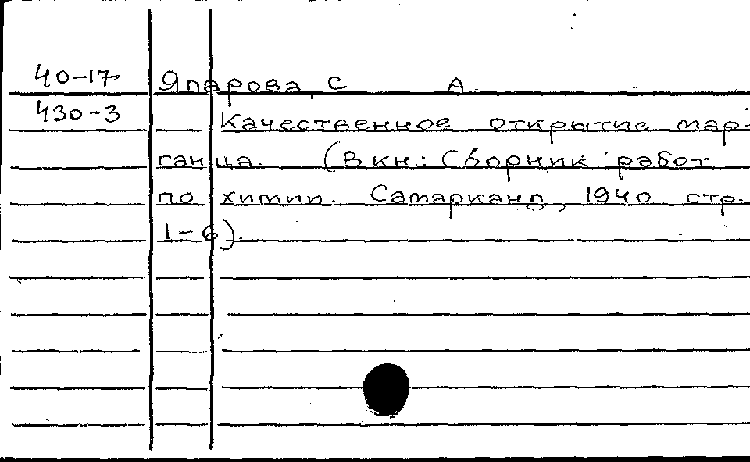 40-17 Япарова, С А.
430-3 Качественное открытие мар-
ганца. (В кн: Сборник работ
по химии. Самарканд, 1940 стр.
1-6).